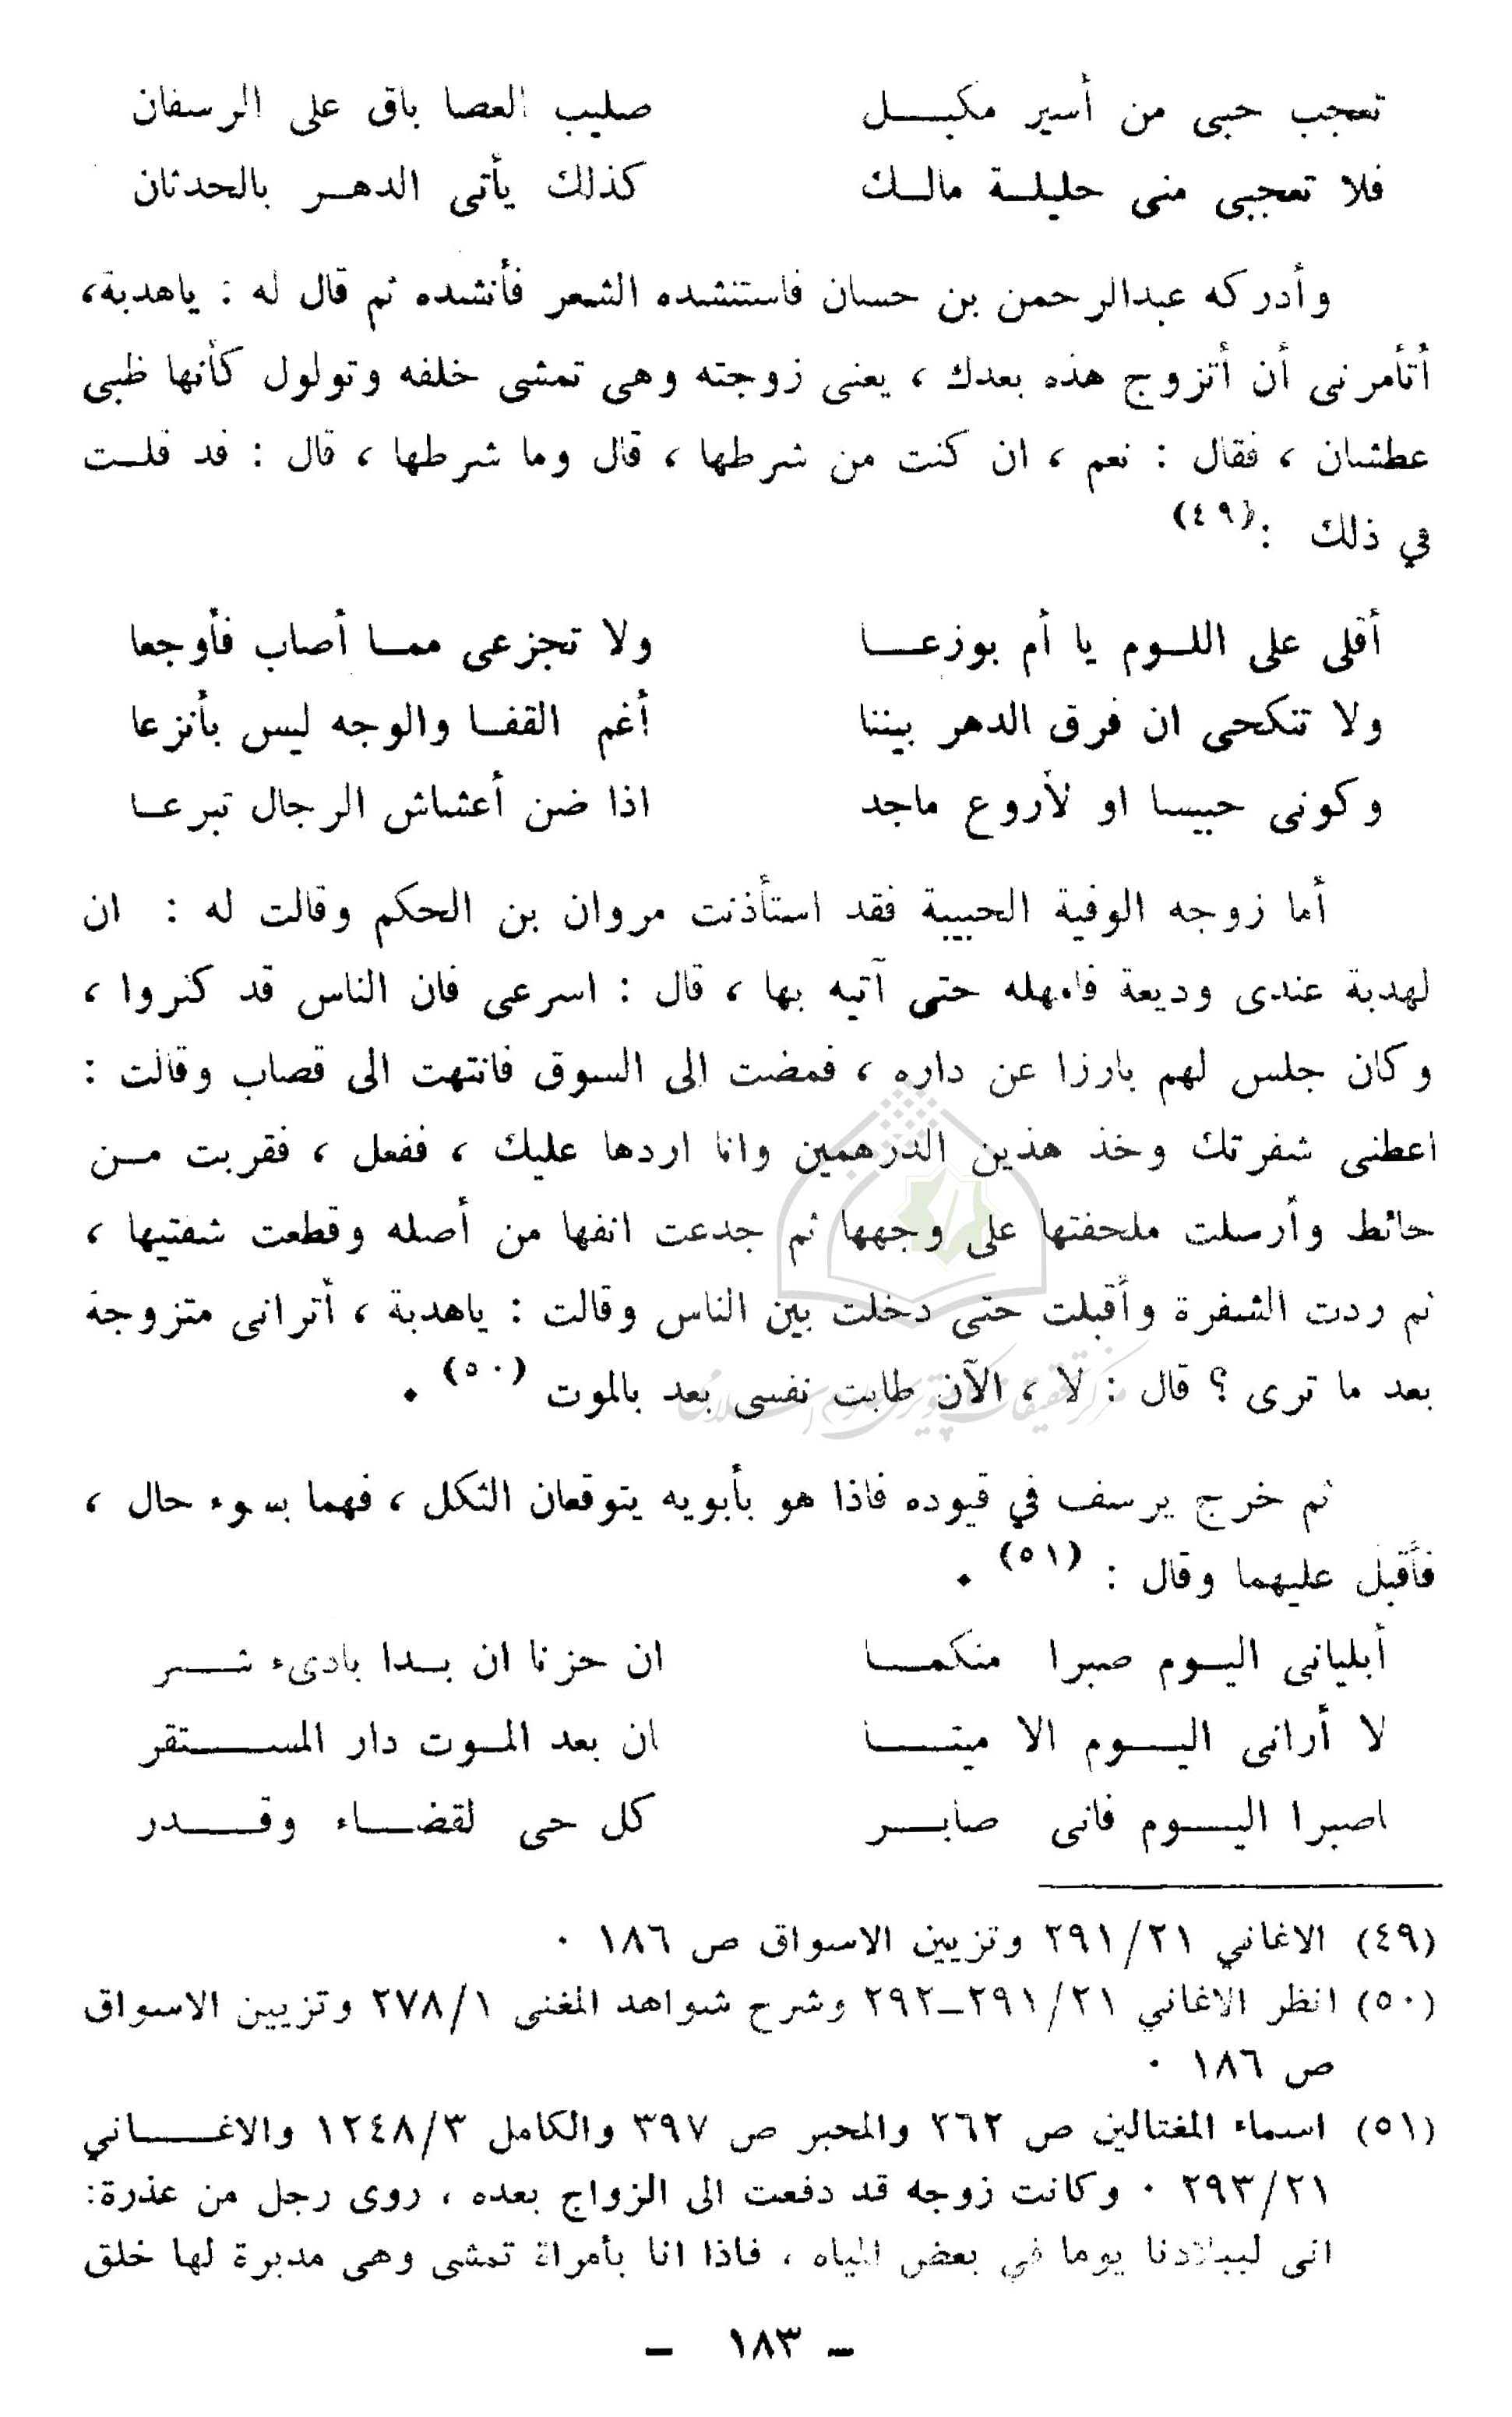 تعجب حبى من أسير مكبــل صليب العصا باق على الرسفان
فلا تعجبى منى حليلـة مالـك كذلك يأتى الدهـر بالحدثان
وأدركه عبدالرحمن بن حسان فاستنشده الشعر فأنشده ثم قال له : ياهدبة،
أتأمرنى أن أتزوج هذه بعدك ، يعنى زوجته وهى تمشى خلفه وتولول كأنها ظبى
عطشان ، فقال : نعم ، ان كنت من شرطها ، قال وما شرطها ، قال : قد قلـت
في ذلك :(٤٩)
أقلى على اللـوم يا أم بوزعـا ولا تجزعى ممـا أصاب فأوجعا
ولا تنكحى ان فرق الدهر بيننا أغم القفـا والوجه ليس بأنزعا
وكونى حبيسا او لأروع ماجد اذا ضن أعشاش الرجال تبرعـا
أما زوجه الوفية الحبيبة فقد استأذنت مروان بن الحكم وقالت له : ان
لهدبة عندى وديعة فامهله حتى آتيه بها ، قال : اسرعى فان الناس قد كثروا ،
وكان جلس لهم بارزا عن داره ، فمضت الى السوق فانتهت الى قصاب وقالت :
اعطنى شفرتك وخذ هذين الدرهمين وانا اردها عليك ، ففعل ، فقربت مـن
حائط وأرسلت ملحفتها على وجهها ثم جدعت انفها من أصله وقطعت شفتيها ،
ثم ردت الشفرة وأقبلت حتى دخلت بين الناس وقالت : ياهدبة ، أترانى متزوجة
بعد ما ترى ؟ قال : لا ، الآن طابت نفسى بعد بالموت (٥٠) .
ثم خرج يرسف في قيوده فاذا هو بأبويه يتوقعان الثكل ، فهما بسوء حال ،
فأقبل عليهما وقال : (٥١) .
أبليانى اليـوم صبرا منكمـا ان حزنا ان بـدا بادىء شـر
لا أرانى اليـوم الا ميتـا ان بعد المـوت دار المسـتقر
اصبرا اليـوم فانى صابـر كل حى لقضـاء وقـدر
(٤٩) الاغاني ٢٩١/٢١ وتزيين الاسواق ص ١٨٦ .
(٥٠) انظر الاغاني ٢٩١/٢١ـ٢٩٢ وشرح شواهد المغنى ٢٧٨/١ وتزيين الاسواق
ص ١٨٦ .
(٥١) اسماء المغتالين ص ٢٦٢ والمحبر ص ٣٩٧ والكامل ١٢٤٨/٣ والاغـاني
٢٩٣/٢١ . وكانت زوجه قد دفعت الى الزواج بعده ، روى رجل من عذرة:
انى لببلادنا يوما في بعض المياه ، فاذا انا بأمراة تمشى وهى مدبرة لها خلق
ـ ١٨٣ ـ